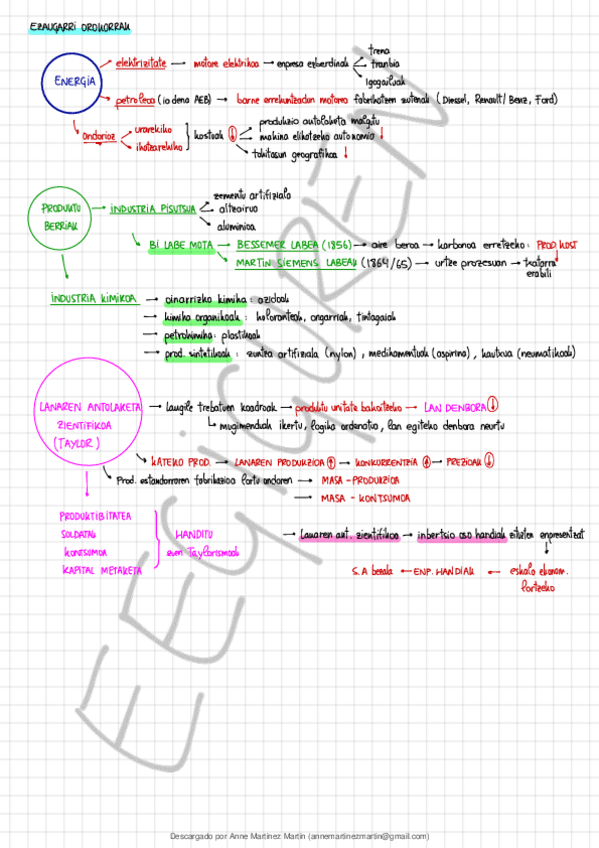 EZAUGARRI OROKORRAK
ENERGIA
elektrizitate → motore elektrikoa → enpresa ezberdinak
trena
tranbia
igogailuak
petroleoa (ia dena AEB) → barne errekuntzadun motorea fabrikatzen zutenak (Diessel, Renault/Benz, Ford)
ondorioz
urarekiko
ikatzarekiko
kostuak ↓
produkzio autoketa malgutu
makina elikatzeko autonomia ↓
tokitasun geografikoa ↓
PRODUKTU BERRIAK
INDUSTRIA PISUTSUA
zementu artifiziala
altzairua
aluminioa
BI LABE MOTA → BESSEMER LABEA (1856) → aire beroa → karbonoa erretzeko: PROD. KOST ↓
MARTIN SIEMENS LABEAK (1864/65) → urtze prozesuan → txatarra erabili
INDUSTRIA KIMIKOA → oinarrizko kimika: azidoak
→ kimika organikoak: koloranteak, ongarriak, tintagaiak
→ petrokimika: plastikoak
→ prod. sintetikoak: zuntza artifiziala (nylon), medikamentuak (aspirina), kautxua (neumatikoak)
LANAREN ANTOLAKETA ZIENTIFIKOA (TAYLOR)
→ langile trebatuen koadroak → produktu unitate bakoitzeko → LAN DENBORA ↓
mugimenduak ikertu, logika ordenatua, lan egiteko denbora neurtu
KATEKO PROD. → LANAREN PRODUKZIOA ↑ → KONKURRENTZIA ↑ → PREZIOAK ↓
Prod. estandarraren fabrikazioa lortu ondoren → MASA - PRODUKZIOA
→ MASA - KONTSUMOA
PRODUKTIBITATEA
SOLDATAK
KONTSUMOA
KAPITAL METAKETA
HANDITU
zuen Taylorismoak
→ Lanaren ant. zientifikoa → inbertsio oso handiak zituzten enpresentzat
S.A bezala ← ENP. HANDIAK ← eskala ekonom. lortzeko
EEGIGUREN
Descargado por Anne Martinez Martin (annemartinezmartin@gmail.com)